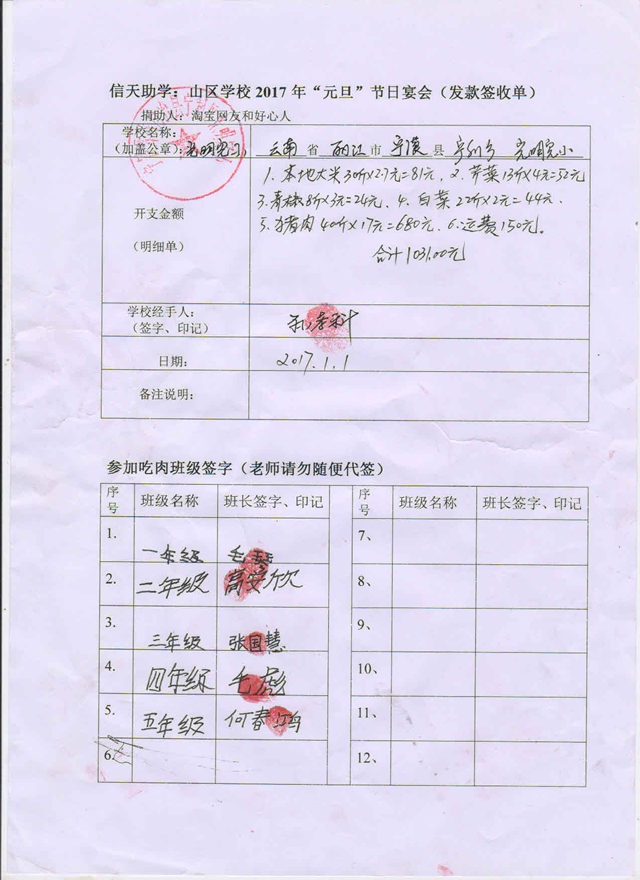 信天助学：山区学校 2017 年“元旦”节日宴会（发款签收单）
捐助人：淘宝网友和好心人
学校名称：
（加盖公章）：光明完小 云南 省 丽江 市 宁蒗 县 光明完小
开支金额
（明细单）
1. 本地大米 30斤×2.7元=81元, 2. 芹菜 13斤×4元=52元
3. 青椒 8斤×3元=24元, 4. 白菜 22斤×2元=44元.
5. 猪肉 40斤×17元=680元, 6. 运费150元。
合计1031.00元
学校经手人：
（签字、印记）
日期： 2017.1.1
备注说明：
参加吃肉班级签字（老师请勿随便代签）
序号 班级名称 班长签字、印记 序号 班级名称 班长签字、印记
1. 一年级 毛 7、
2. 二年级 高安欣 8、
3. 三年级 张国慧 9、
4. 四年级 毛彪 10、
5. 五年级 何春鸿 11、
6. 12、